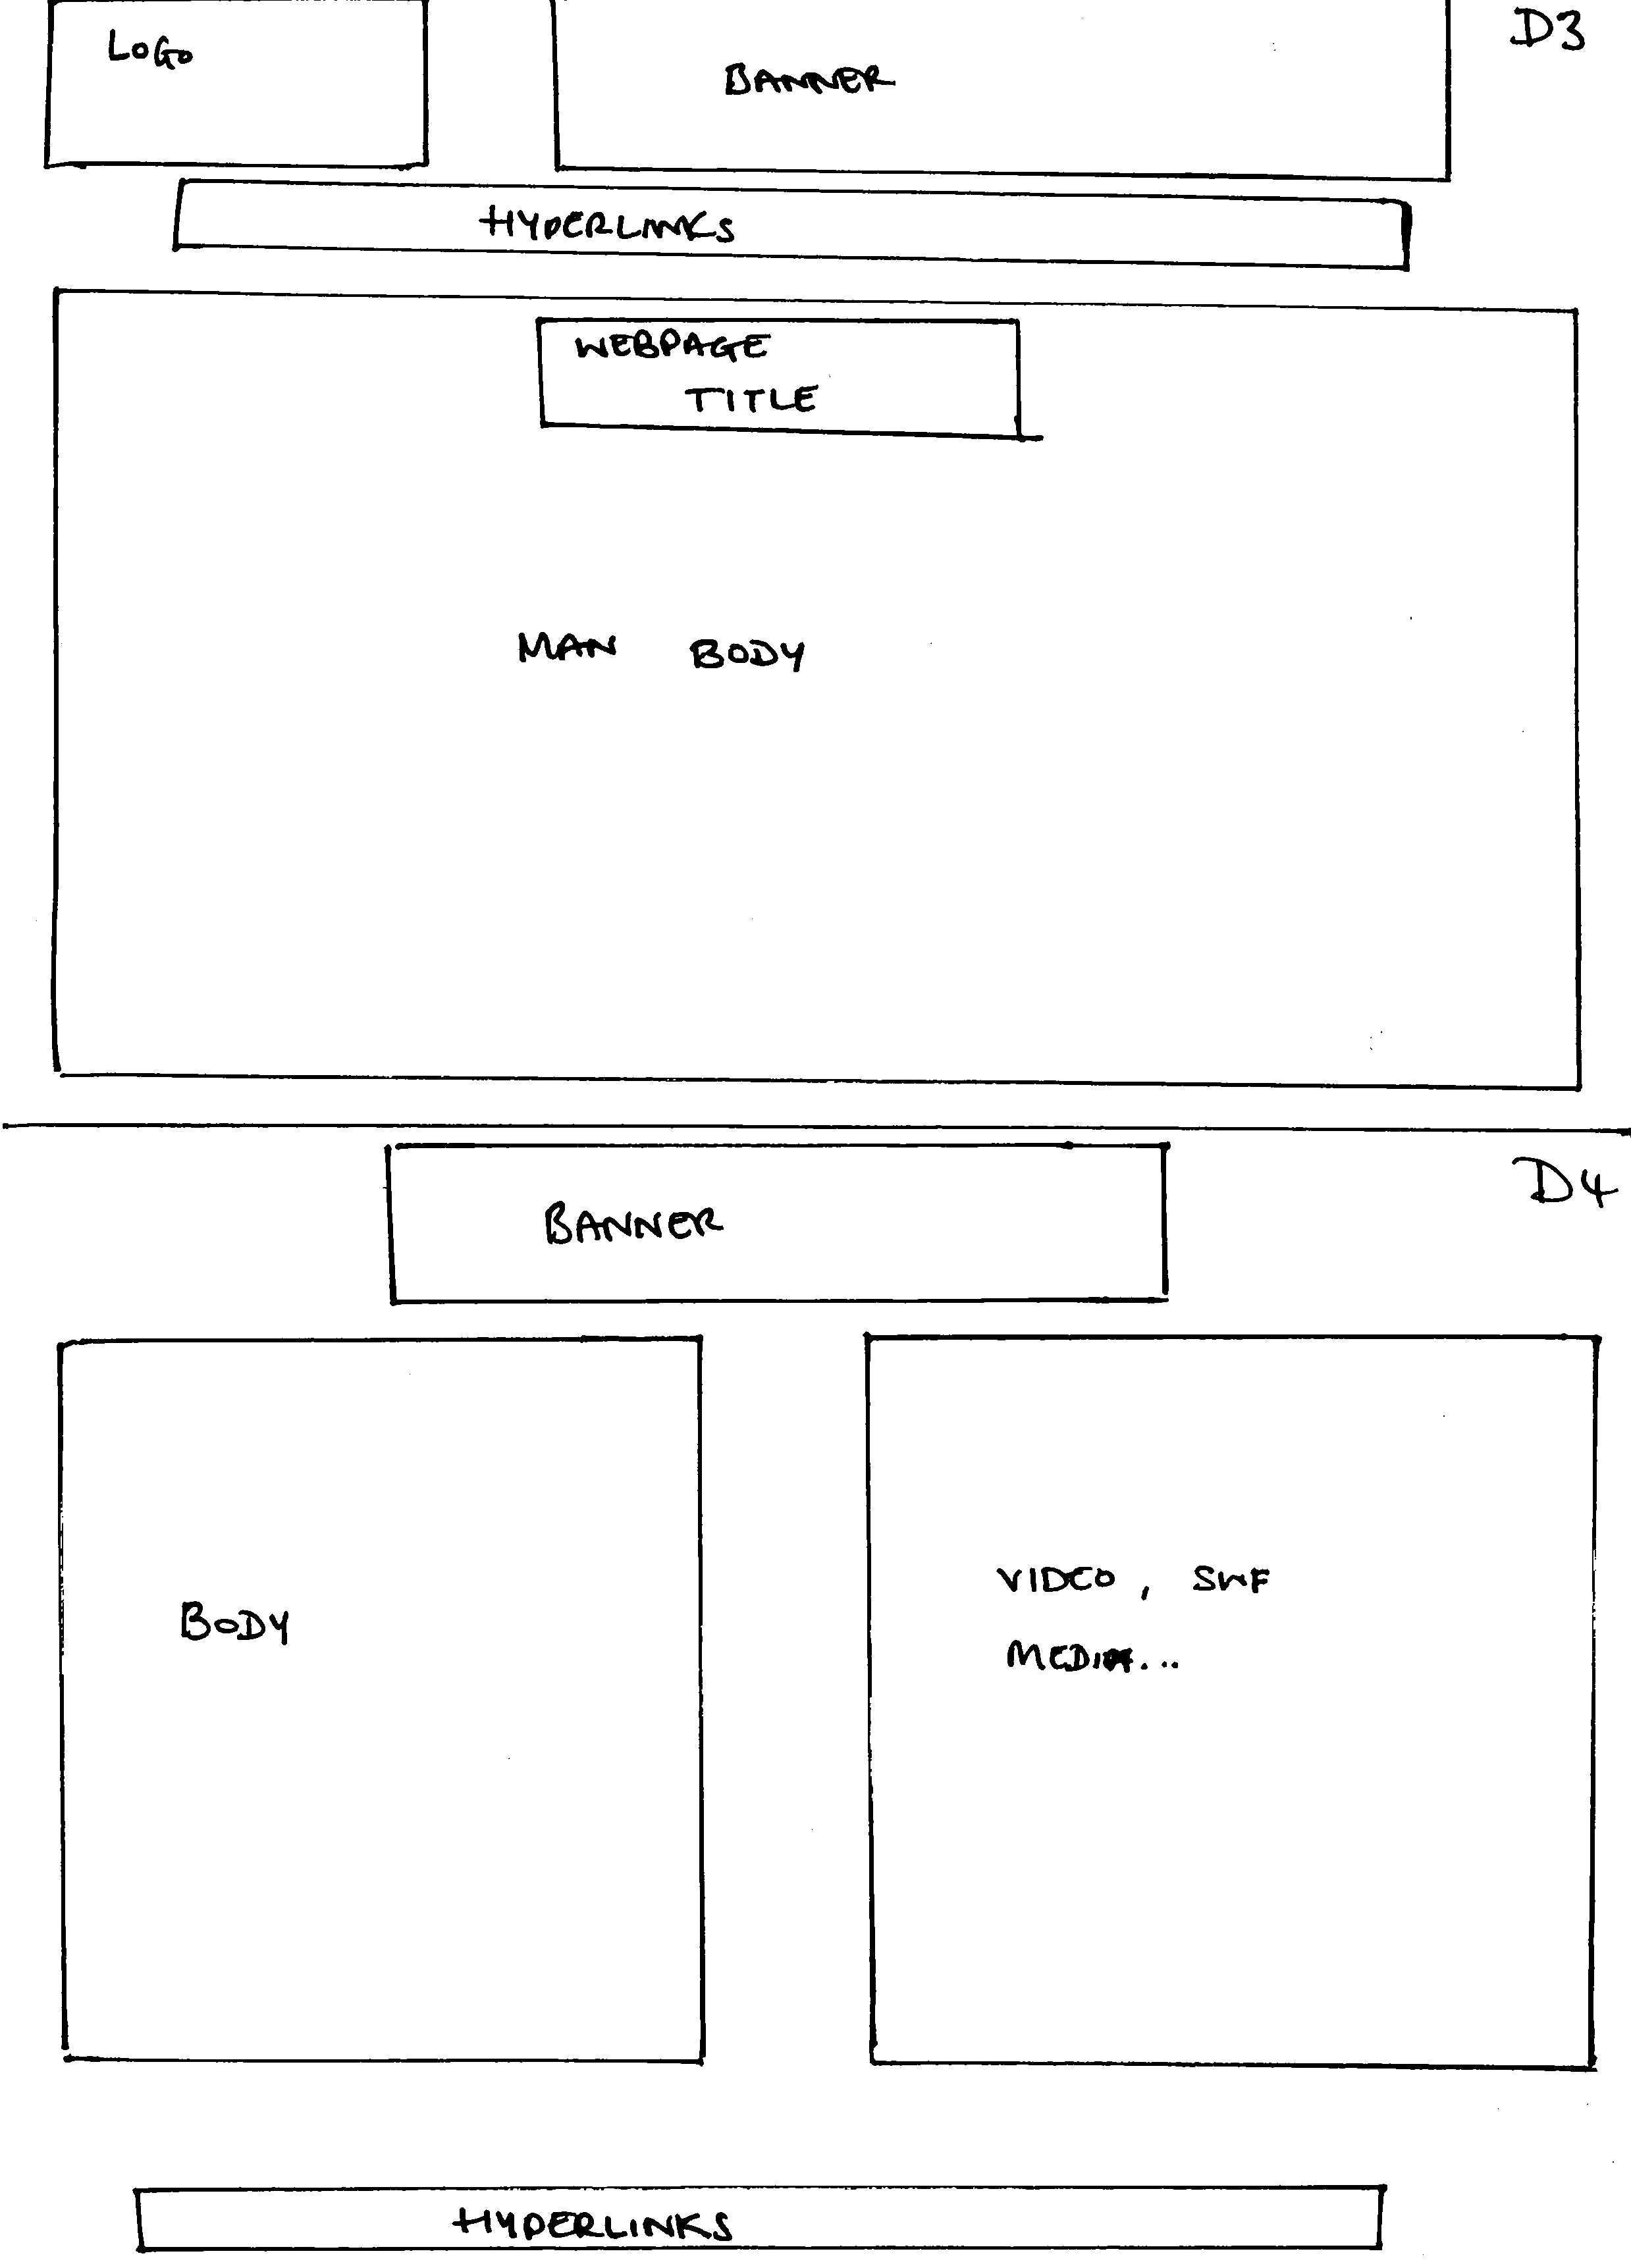 LOGO
BANNER
D3
HYPERLINKS
WEBPAGE
TITLE
MAN BODY
D4
BANNER
BODY
VIDEO, SWF
MEDIA...
HYPERLINKS